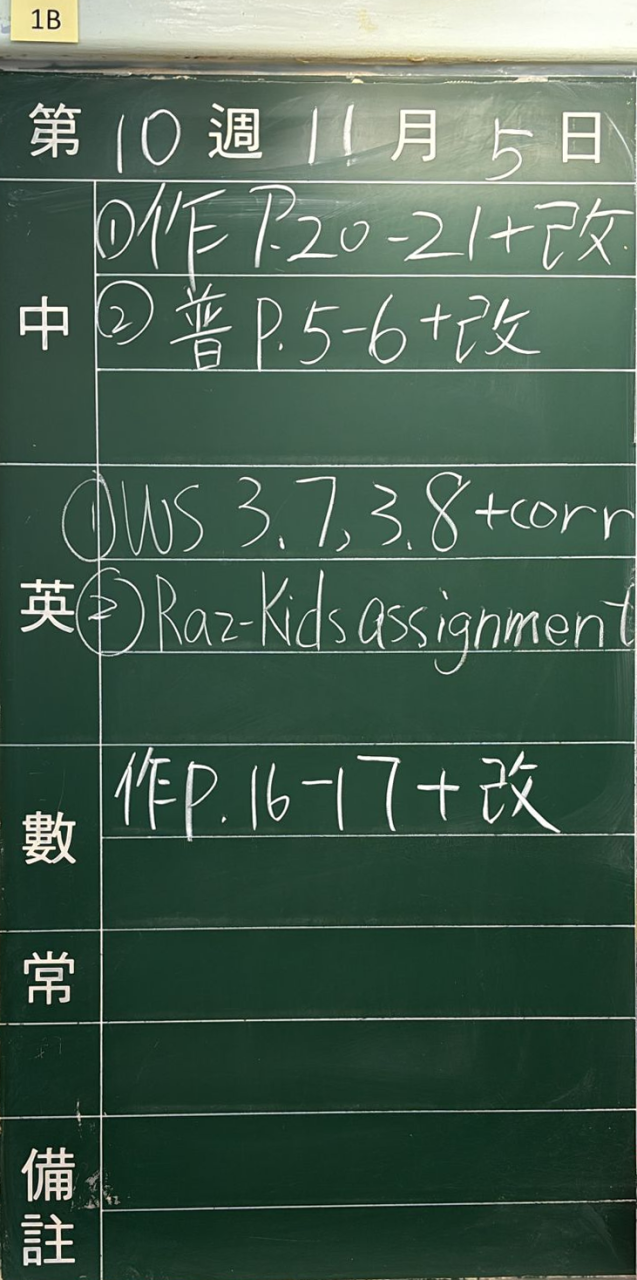 1B
第 10 週 11 月 5 日
中
①作 P.20-21+改
②普 P.5-6+改
英
①WS 3.7, 3.8+corr
②Raz-Kids assignment
數
作P.16-17+改
常
備註